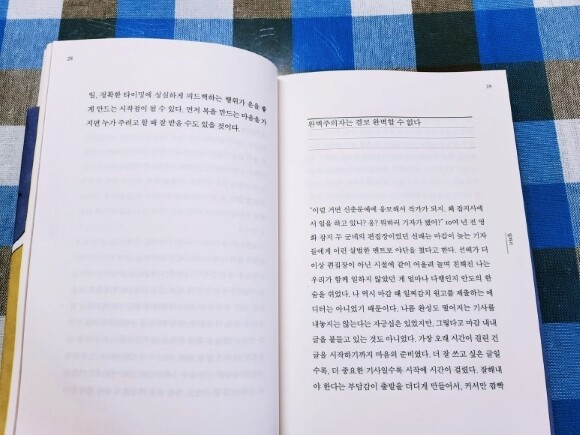 28
일, 정확한 타이밍에 성실하게 피드백하는 행위가 운을 좋
게 만드는 시작점이 될 수 있다. 먼저 복을 만드는 마음을 가
지면 누가 주려고 할 때 잘 받을 수도 있을 것이다.
29
완벽주의자는 결코 완벽할 수 없다
"이럴 거면 신춘문예에 응모해서 작가가 되지, 왜 잡지사에
서 일을 하고 있니? 응? 뭐하러 기자가 됐어?" 10여 년 전 영
화 잡지 두 군데의 편집장이었던 선배는 마감이 늦는 기자
들에게 이런 살벌한 멘트로 야단을 쳤다고 한다. 선배가 더
이상 편집장이 아닌 시절에 같이 어울려 놀며 친해진 나는
우리가 함께 일하지 않았던 게 얼마나 다행인지 안도의 한
숨을 쉬었다. 나 역시 마감 때 일찌감치 원고를 제출하는 에
디터는 아니었기 때문이다. 나름 완성도 떨어지는 기사를
내놓지는 않는다는 자긍심은 있었지만, 그렇다고 마감 내내
글을 붙들고 있는 것도 아니었다. 가장 오래 시간이 걸린 건
글을 시작하기까지 마음의 준비였다. 더 잘 쓰고 싶은 글일
수록, 더 중요한 기사일수록 시작에 시간이 걸렸다. 잘해내
야 한다는 부담감이 출발을 더디게 만들어서, 커서만 깜빡